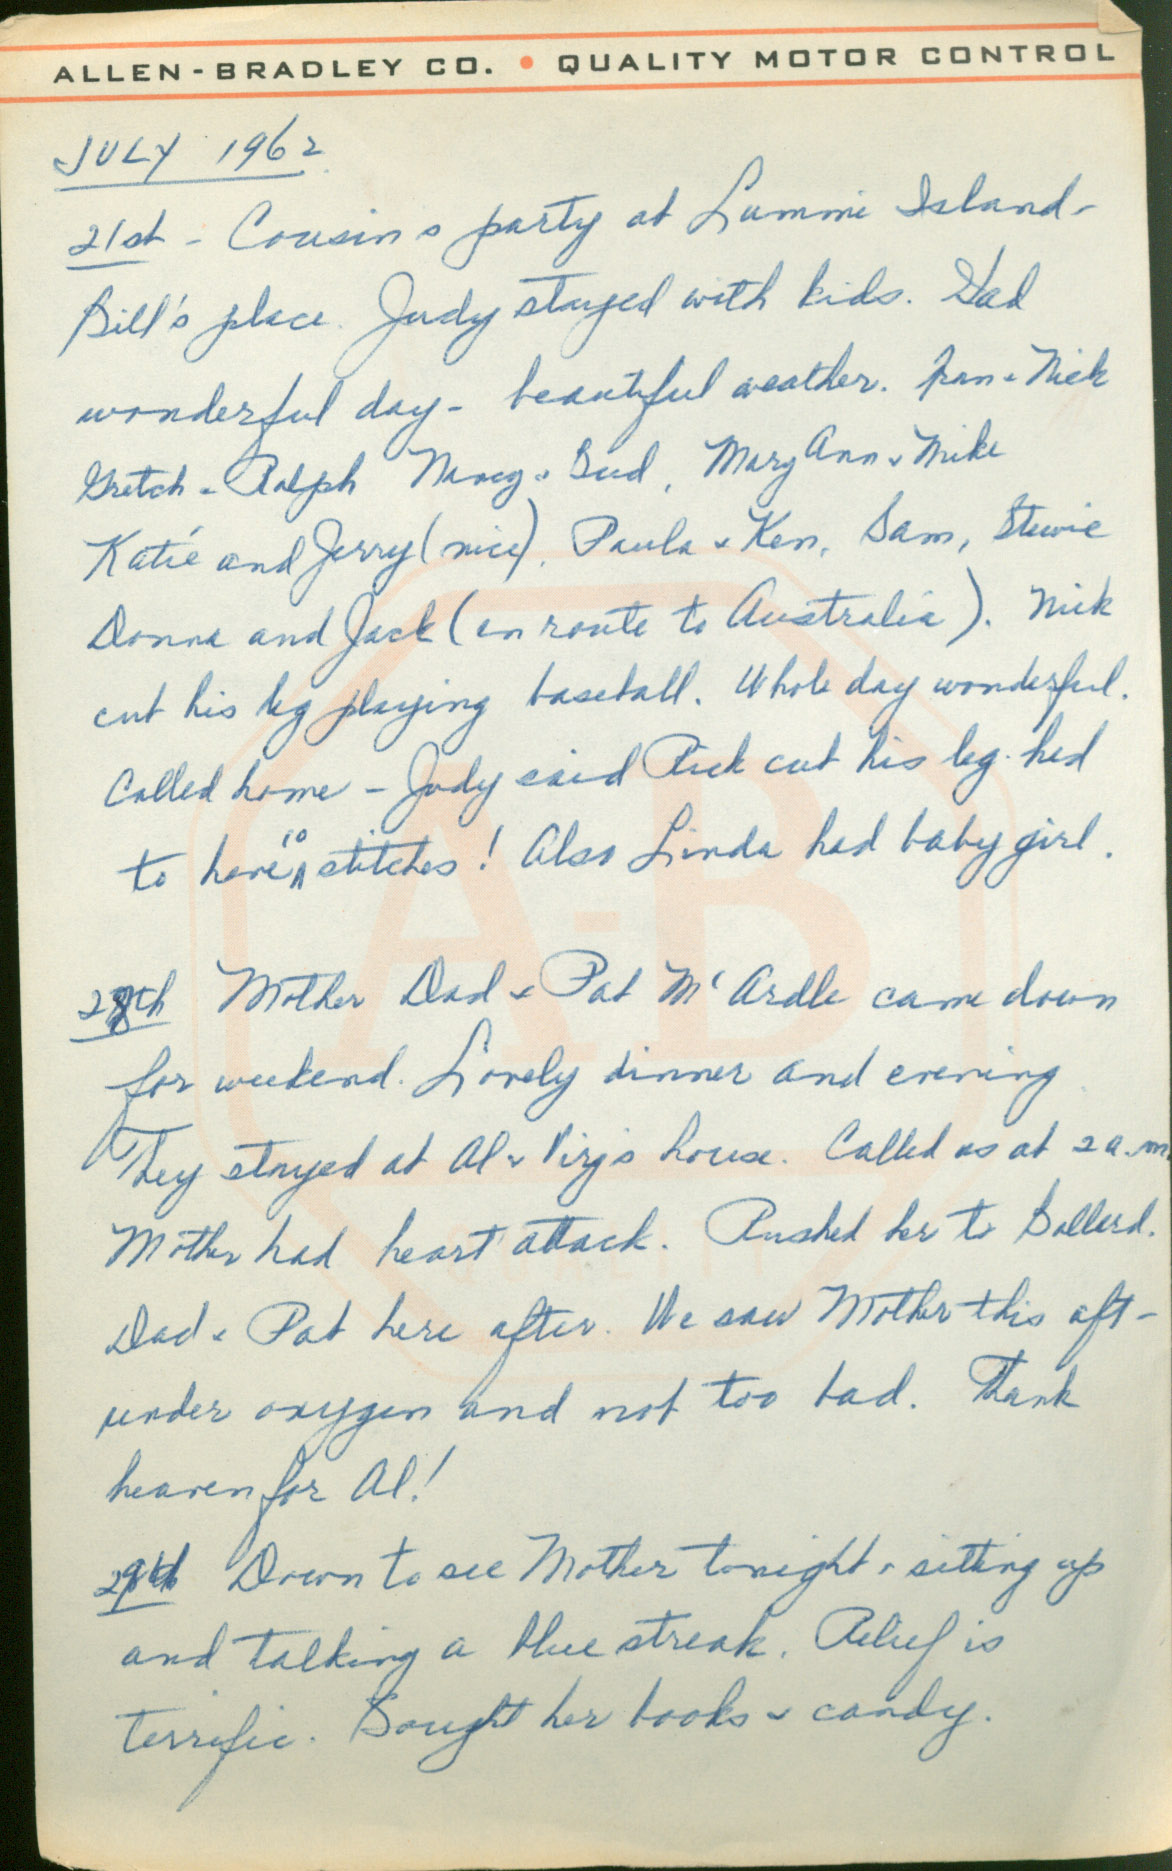 ALLEN-BRADLEY CO. • QUALITY MOTOR CONTROL
JULY 1962
21st - Cousins party at Lummi Island -
Bill's place. Judy stayed with kids. Had
wonderful day - beautiful weather. Fran & Nick
Gretch & Ralph Nancy & Bud, Mary Ann & Mike
Katie and Jerry (nice). Paula & Ken, Sam, Stewie
Donna and Jack (en route to Australia). Nick
cut his leg playing baseball. Whole day wonderful.
Called home - Judy said Rick cut his leg. had
to have 10 stitches! Also Linda had baby girl.
A-B
28th Mother Dad & Pat McArdle came down
for weekend. Lovely dinner and evening
They stayed at Al & Virg's house. Called us at 2 a.m.
Mother had heart attack. Rushed her to Ballard.
QUALITY
Dad & Pat here after. We saw Mother this aft -
under oxygen and not too bad. Thank
heaven for Al!
29th Down to see Mother tonight - sitting up
and talking a blue streak. Relief is
terrific. Bought her books & candy.